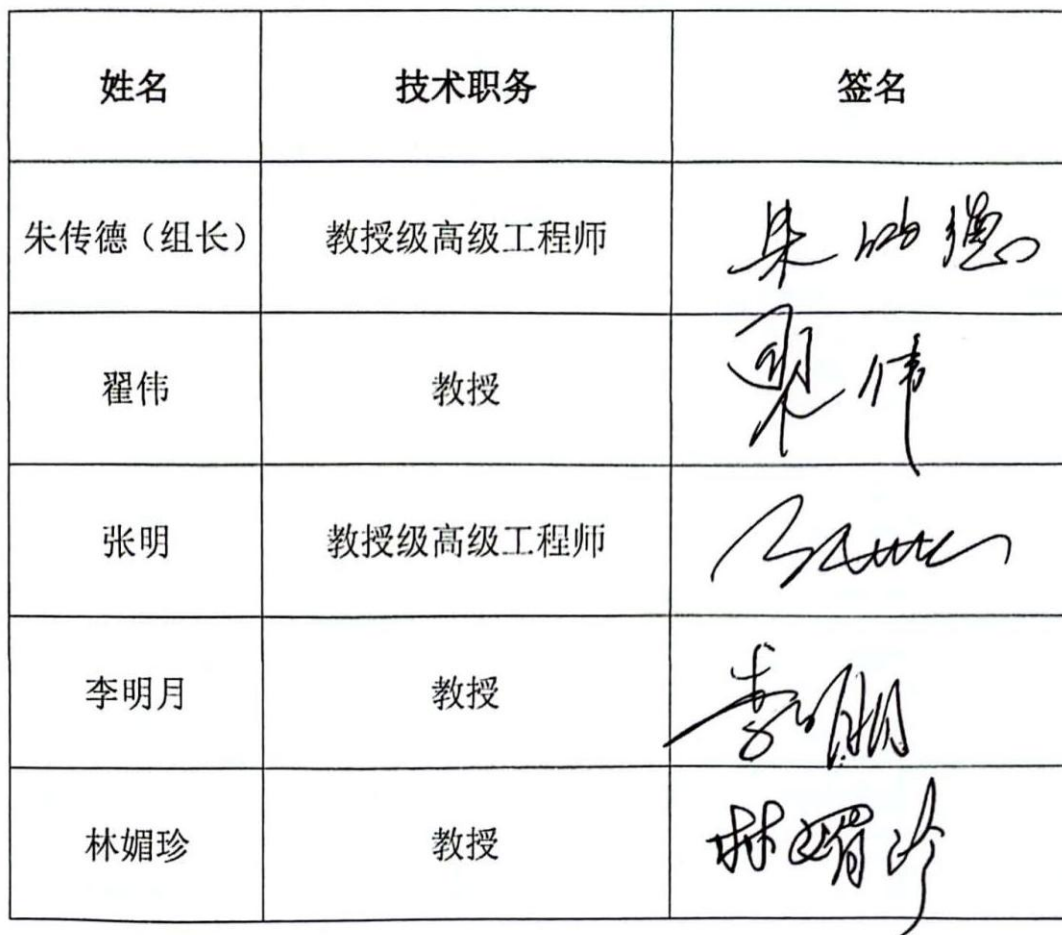 姓名 技术职务 签名
朱传德（组长） 教授级高级工程师 朱传德
翟伟 教授 翟伟
张明 教授级高级工程师
李明月 教授 李明月
林媚珍 教授 林媚珍